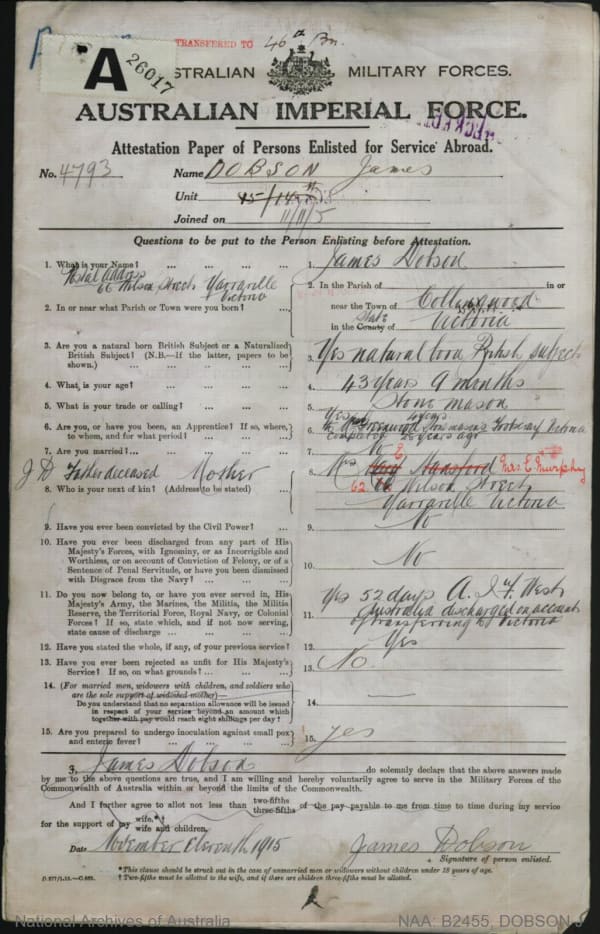 TRANSFERRED TO 46th Bn.
A 26017
STRALIAN MILITARY FORCES.
AUSTRALIAN IMPERIAL FORCE.
Attestation Paper of Persons Enlisted for Service Abroad.
No. 4793 Name DOBSON James
Unit 15/14
Joined on 11/11/5
Questions to be put to the Person Enlisting before Attestation.
1. What is your Name? ... ... ... ...
1. James Dobson
Postal address
66 Wilson Street Yarraville
Victoria
2. In or near what Parish or Town were you born? ...
2. In the Parish of in or
near the Town of Collingwood
in the County of State Victoria
3. Are you a natural born British Subject or a Naturalized
British Subject? (N.B.—If the latter, papers to be
shown.) ... ... ... ... ...
3. Yes natural born British subject
4. What is your age? ... ... ... ...
4. 43 years 9 months
5. What is your trade or calling? ... ... ...
5. Stone mason
6. Are you, or have you been, an Apprentice? If so, where,
to whom, and for what period? ... ... ...
6. Yes 4 years
Stonemason Footscray Victoria
completed 25 years ago
7. Are you married? ... ... ... ...
7. No
J D Father deceased Mother
8. Who is your next of kin? (Address to be stated) ...
8. Mrs E Mansford Mrs E Murphy
62 Wilson Street
Yarraville Victoria
9. Have you ever been convicted by the Civil Power? ...
9. No
10. Have you ever been discharged from any part of His
Majesty's Forces, with Ignominy, or as Incorrigible and
Worthless, or on account of Conviction of Felony, or of a
Sentence of Penal Servitude, or have you been dismissed
with Disgrace from the Navy? ... ... ...
10. No
11. Do you now belong to, or have you ever served in, His
Majesty's Army, the Marines, the Militia, the Militia
Reserve, the Territorial Force, Royal Navy, or Colonial
Forces? If so, state which, and if not now serving,
state cause of discharge ... ... ...
11. Yes 52 days A.I.F. West
Australia discharged on account
of transferring to Victoria
12. Have you stated the whole, if any, of your previous service?
12. Yes
13. Have you ever been rejected as unfit for His Majesty's
Service? If so, on what grounds? ... ... ...
13. No
14. (For married men, widowers with children, and soldiers who
are the sole support of widowed mother)—
Do you understand that no separation allowance will be issued
in respect of your service beyond an amount which
together with pay would reach eight shillings per day?
14. —
15. Are you prepared to undergo inoculation against small pox
and enteric fever? ... ... ... ...
15. yes
I, James Dobson do solemnly declare that the above answers made
by me to the above questions are true, and I am willing and hereby voluntarily agree to serve in the Military Forces of the
Commonwealth of Australia within or beyond the limits of the Commonwealth.
And I further agree to allot not less than two-fifths three-fifths of the pay payable to me from time to time during my service
for the support of my wife.*† wife and children.
Date November Eleventh 1915 James Dobson
Signature of person enlisted.
*This clause should be struck out in the case of unmarried men or widowers without children under 18 years of age.
† Two-fifths must be allotted to the wife, and if there are children three-fifths must be allotted.
National Archives of Australia
NAA: B2455, DOBSON J